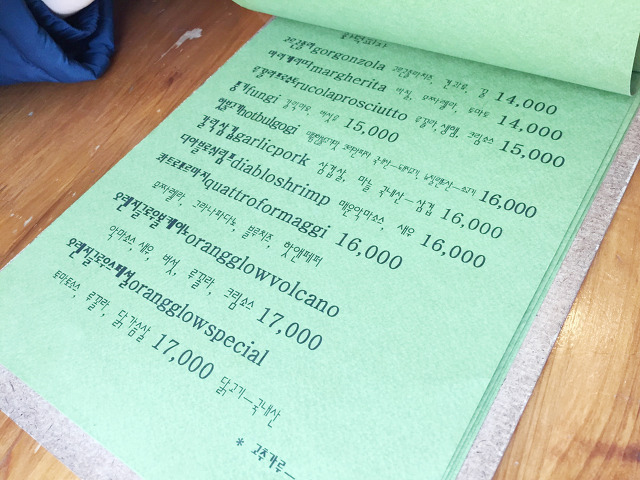 고르곤졸라gorgonzola 고르곤졸라치즈, 견과류, 꿀 14,000
마르게리따margherita 바질, 모짜렐라, 토마토 14,000
루꼴라프로슈토rucolaprosciutto 루꼴라, 생햄, 크림소스 15,000
풍기fungi 갈릭마요, 버섯류 15,000
핫불고기hotbulgogi 16,000
갈릭삼겹garlicpork 삼겹살, 마늘 국내산-삼겹 16,000
디아블로쉬림프diabloshrimp 매운악마소스, 새우 16,000
콰트로포르마지quattroformaggi 16,000
모짜렐라, 그라나파다노, 블루치즈, 핫앤페퍼
오렌질글로우볼케이노orangglowvolcano
악마소스, 새우, 버섯, 루꼴라, 크림소스 17,000
오렌질글로우스페셜orangglowspecial
토마토소스, 루꼴라, 닭가슴살 17,000 닭고기-국내산
* 고추가루-